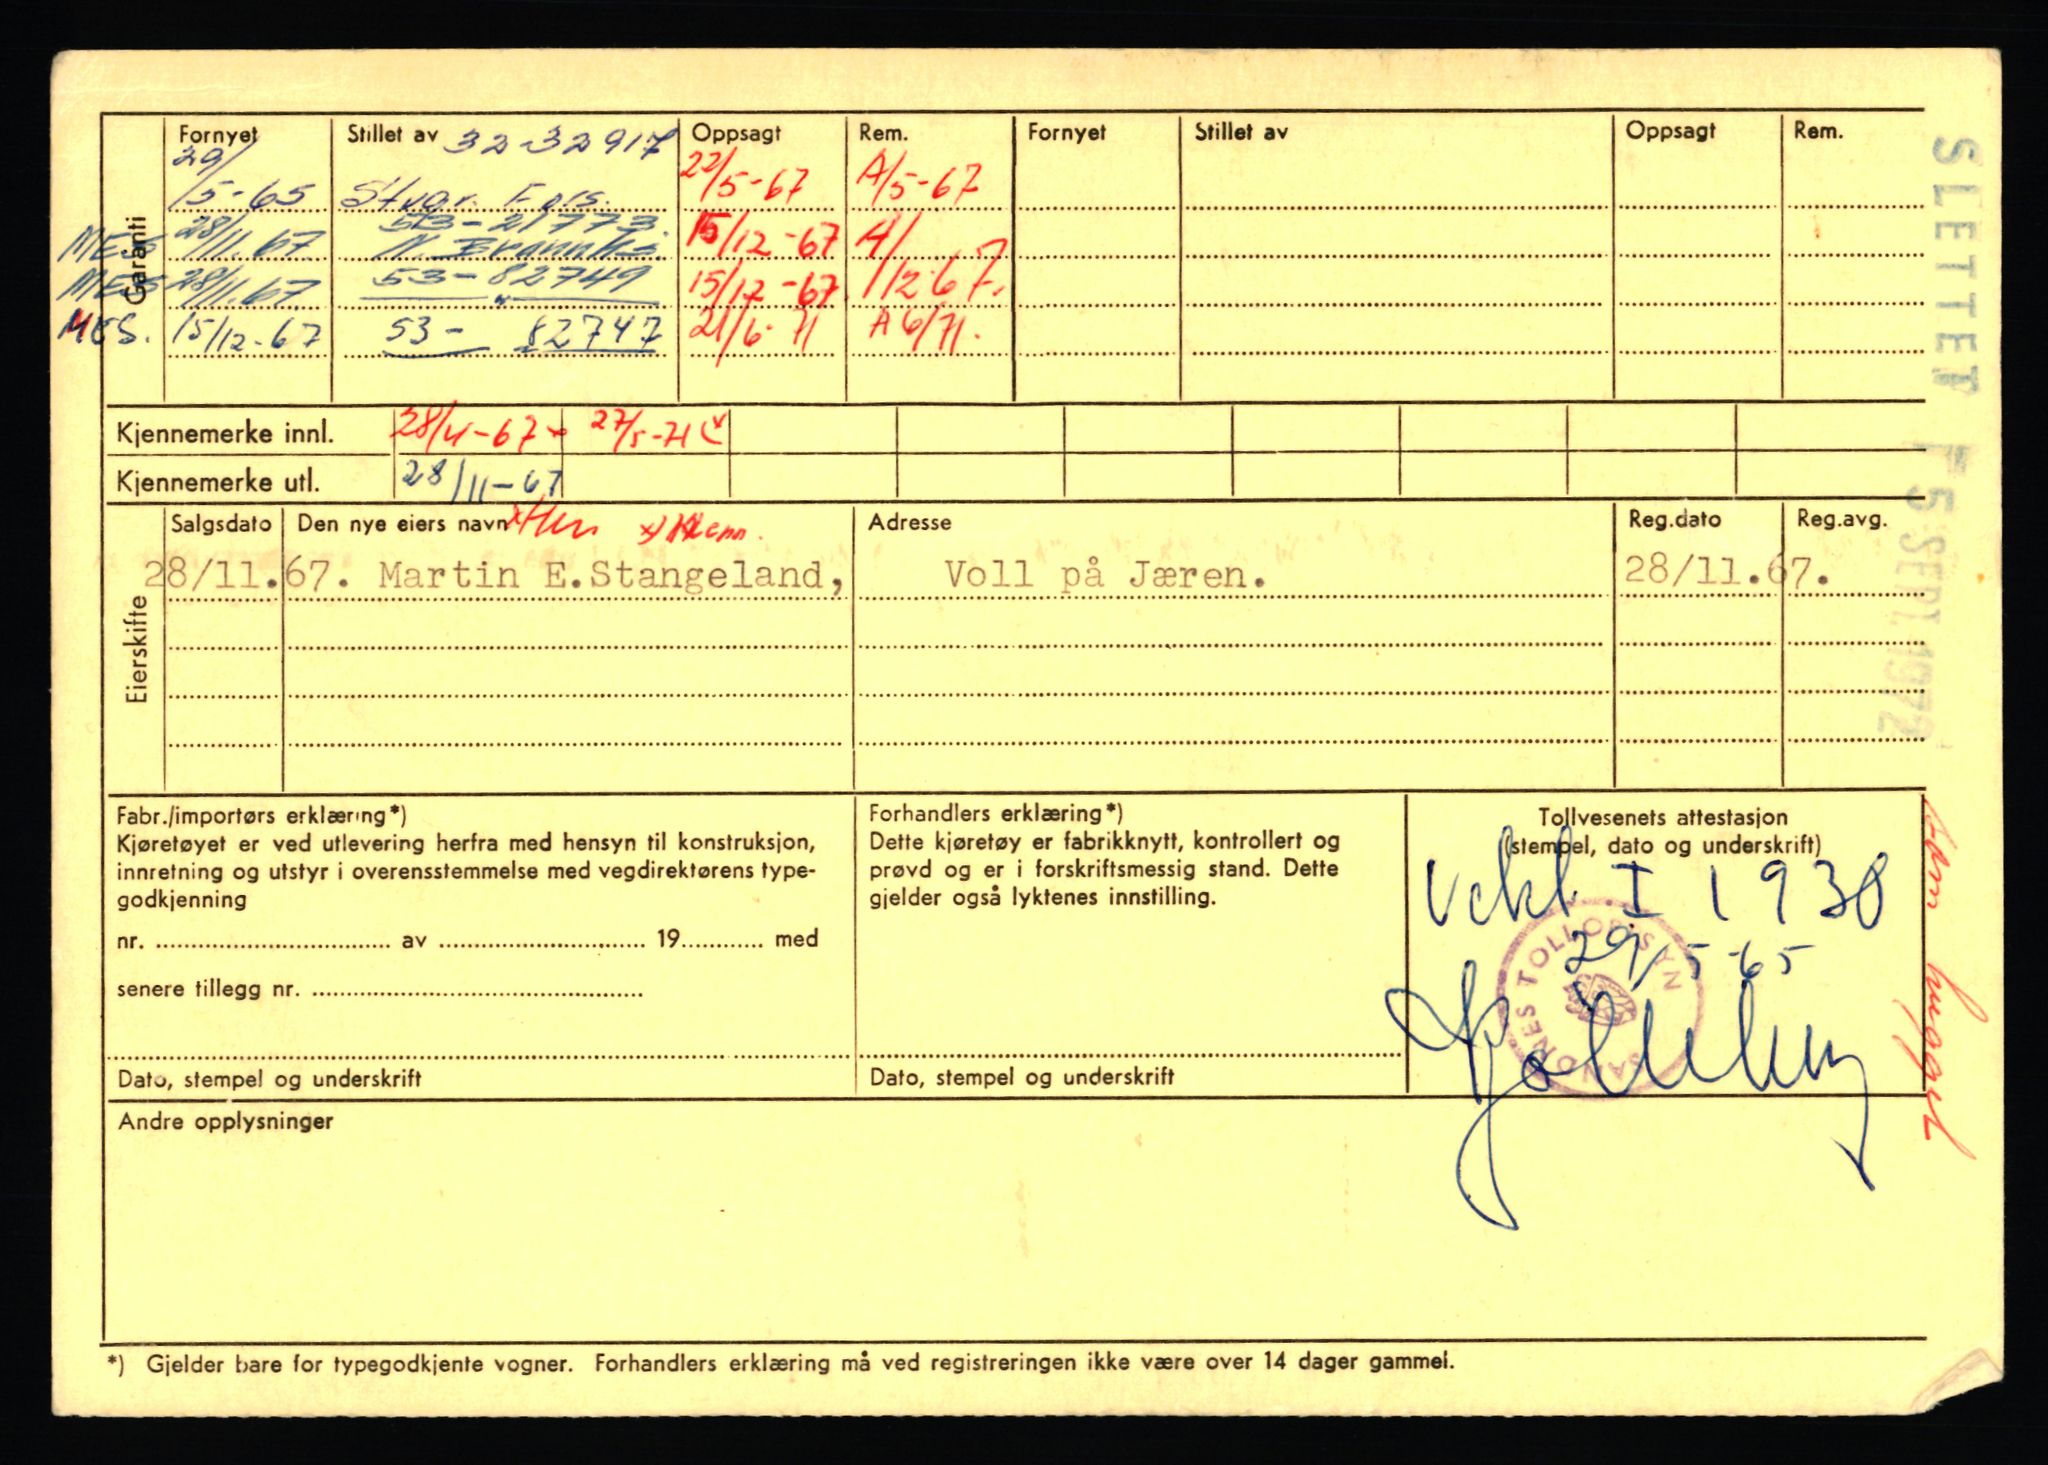 Garanti
Fornyet Stillet av 32-32917 Oppsagt Rem. Fornyet Stillet av Oppsagt Rem.
29/5-65 Stvgr. Fors. 22/5-67 A/5-67
MES 28/11.67 53-21773. 15/12-67 A/12.67.
MES 28/11.67 53-82749 15/12-67
MES. 15/12-67 53- 82747 21/6-71 A 6/71.
Kjennemerke innl. 28/11-67 27/5-71
Kjennemerke utl. 28/11-67
Eierskifte
Salgsdato Den nye eiers navn Adresse Reg.dato Reg.avg.
28/11.67. Martin E.Stangeland, Voll på Jæren. 28/11.67.
SLETTET 15 SEPT 1972
Fabr./importørs erklæring*)
Kjøretøyet er ved utlevering herfra med hensyn til konstruksjon,
innretning og utstyr i overensstemmelse med vegdirektørens type-
godkjenning
nr. av 19 med
senere tillegg nr.
Dato, stempel og underskrift
Forhandlers erklæring*)
Dette kjøretøy er fabrikknytt, kontrollert og
prøvd og er i forskriftsmessig stand. Dette
gjelder også lyktenes innstilling.
Dato, stempel og underskrift
Tollvesenets attestasjon
(stempel, dato og underskrift)
I 1938
29/5-65
SANDNES TOLLOPPSYN
som hugget
Andre opplysninger
*) Gjelder bare for typegodkjente vogner. Forhandlers erklæring må ved registreringen ikke være over 14 dager gammel.